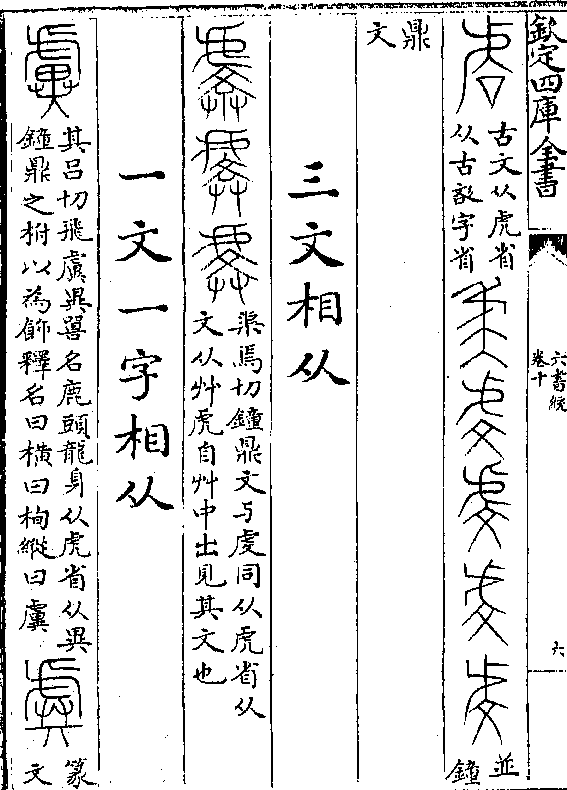 欽定四庫全書
六書統
卷十
六
古文从虎省
从古 字省
並
鐘
鼎
文
三文相从
渠焉切鐘鼎文与虔同从虎省从
文从艸虎自艸中出見其文也
一文一字相从
其呂切飛虡異嘼名鹿頭龍身从虎省从異
鐘鼎之柎以為飾釋名曰橫曰栒縱曰虡
篆
文